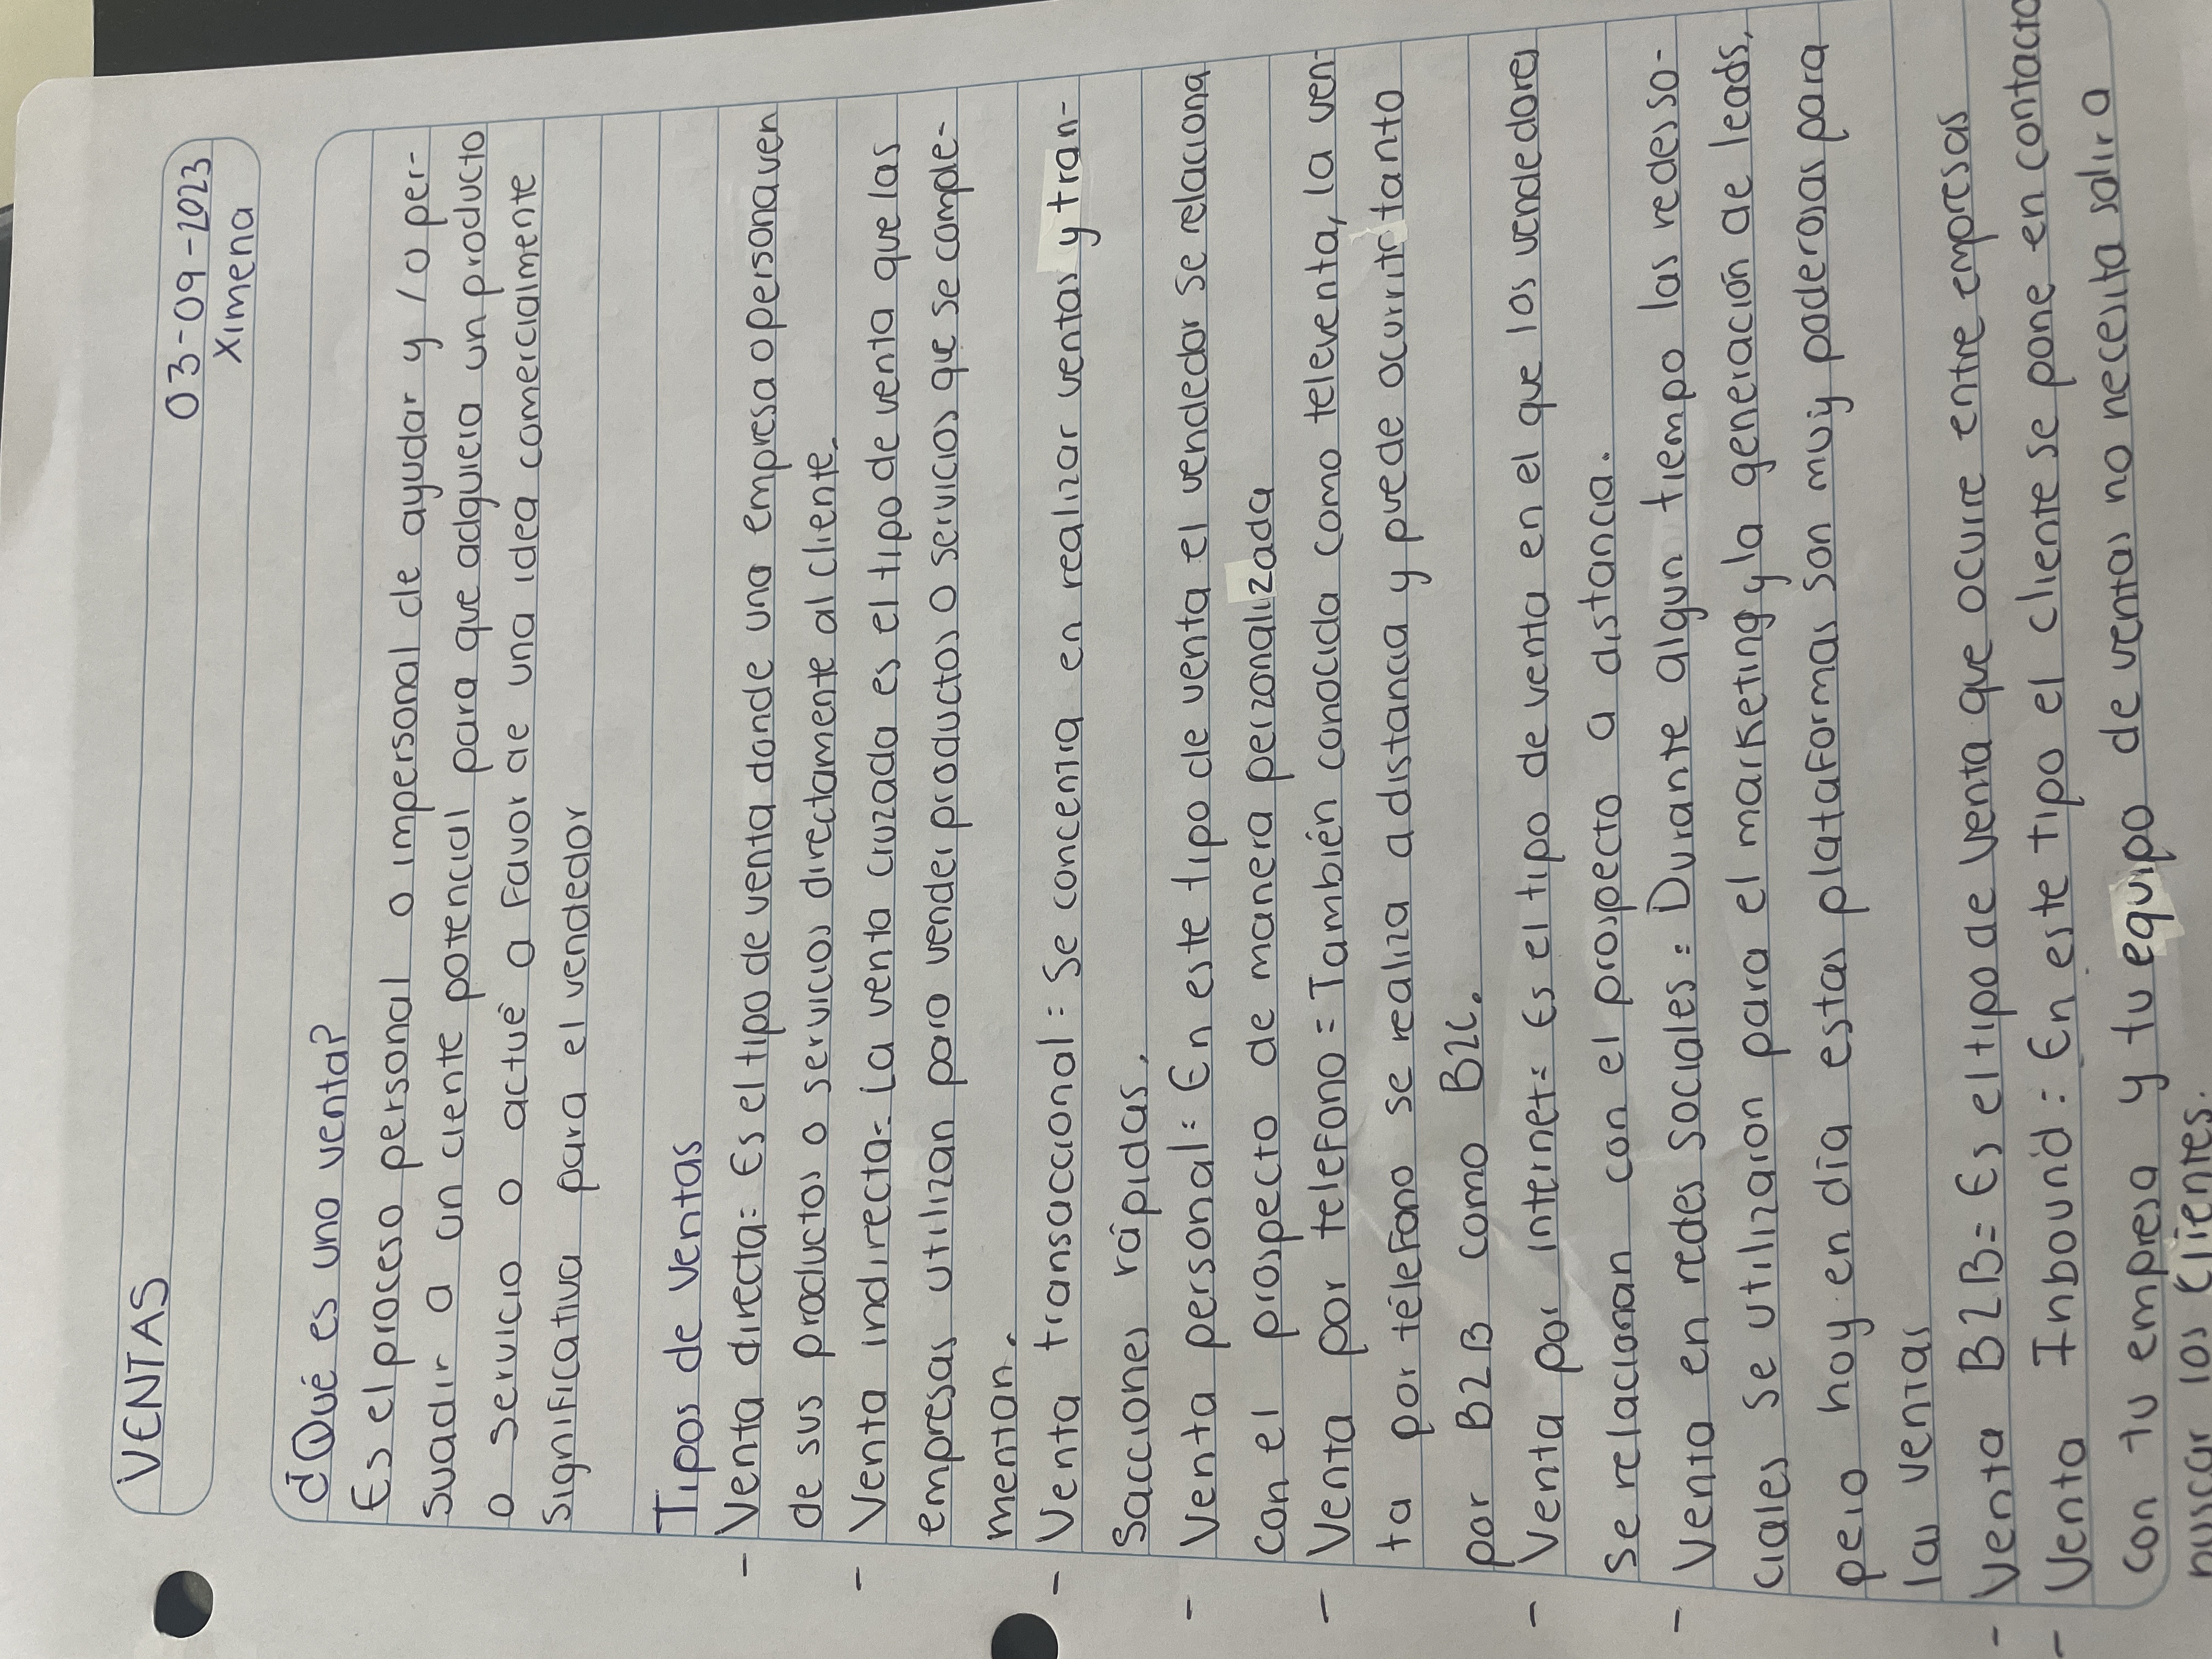 VENTAS
03-09-2023
Ximena
¿Qué es una venta?
Es el proceso personal o impersonal de ayudar y / o per-
suadir a un ciente potencial para que adquiera un producto
o servicio o actué a favor de una idea comercialmente
significativa para el vendedor
Tipos de ventas
- Venta directa= Es el tipo de venta donde una empresa o persona ven
de sus productos o servicios directamente al cliente.
- Venta indirecta= La venta cruzada es el tipo de venta que las
empresas utilizan para vender productos o servicios que se comple-
mentan.
- Venta transaccional= Se concentra en realizar ventas y tran-
sacciones rápidas.
- Venta personal= En este tipo de venta el vendedor se relaciona
con el prospecto de manera perzonalizada
- Venta por telefono= También conocida como televenta, la ven-
ta por télefono se realiza a distancia y puede ocurrir tanto
por B2B como B2C.
- Venta por internet= Es el tipo de venta en el que los vendedores
se relacionan con el prospecto a distancia.
- Venta en redes sociales= Durante algun tiempo las redes so-
ciales se utilizaron para el marketing y la generación de leads,
pero hoy en día estas plataformas son muy poderosas para
las ventas
- Venta B2B= Es el tipo de venta que ocurre entre empresas
- Venta Inbound= En este tipo el cliente se pone en contacto
con tu empresa y tu equipo de ventas no necesita salir a
buscar los clientes.